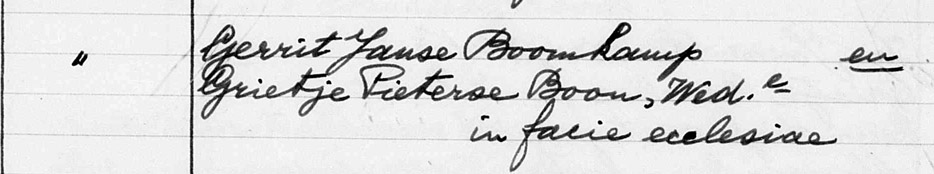 " Gerrit Janse Boomkamp en
Grietje Pieterse Boon, Wed.e
in facie ecclesiae